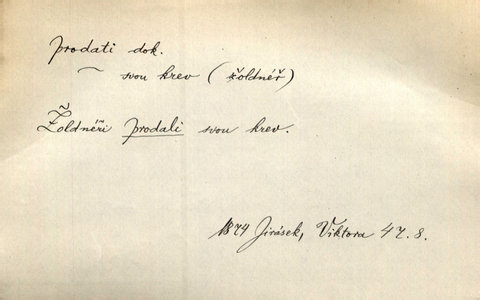 prodati dok.
~ svou krev (žoldnéř)
Žoldnéři prodali svou krev.
1874 Jirásek, Viktora 47.8.